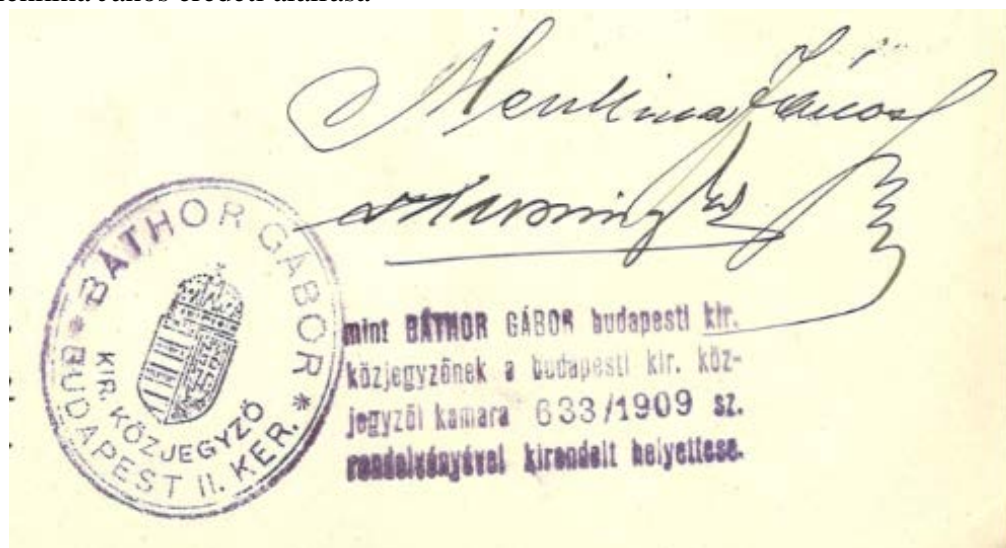 János eredeti aláírása
Menkina János
BÁTHOR GÁBOR
* BUDAPEST II. KER. *
KIR. KÖZJEGYZŐ
mint BÁTHOR GÁBOR budapesti kir.
közjegyzőnek a budapesti kir. köz-
jegyzői kamara 633/1909 sz.
rendelvényével kirendelt helyettese.